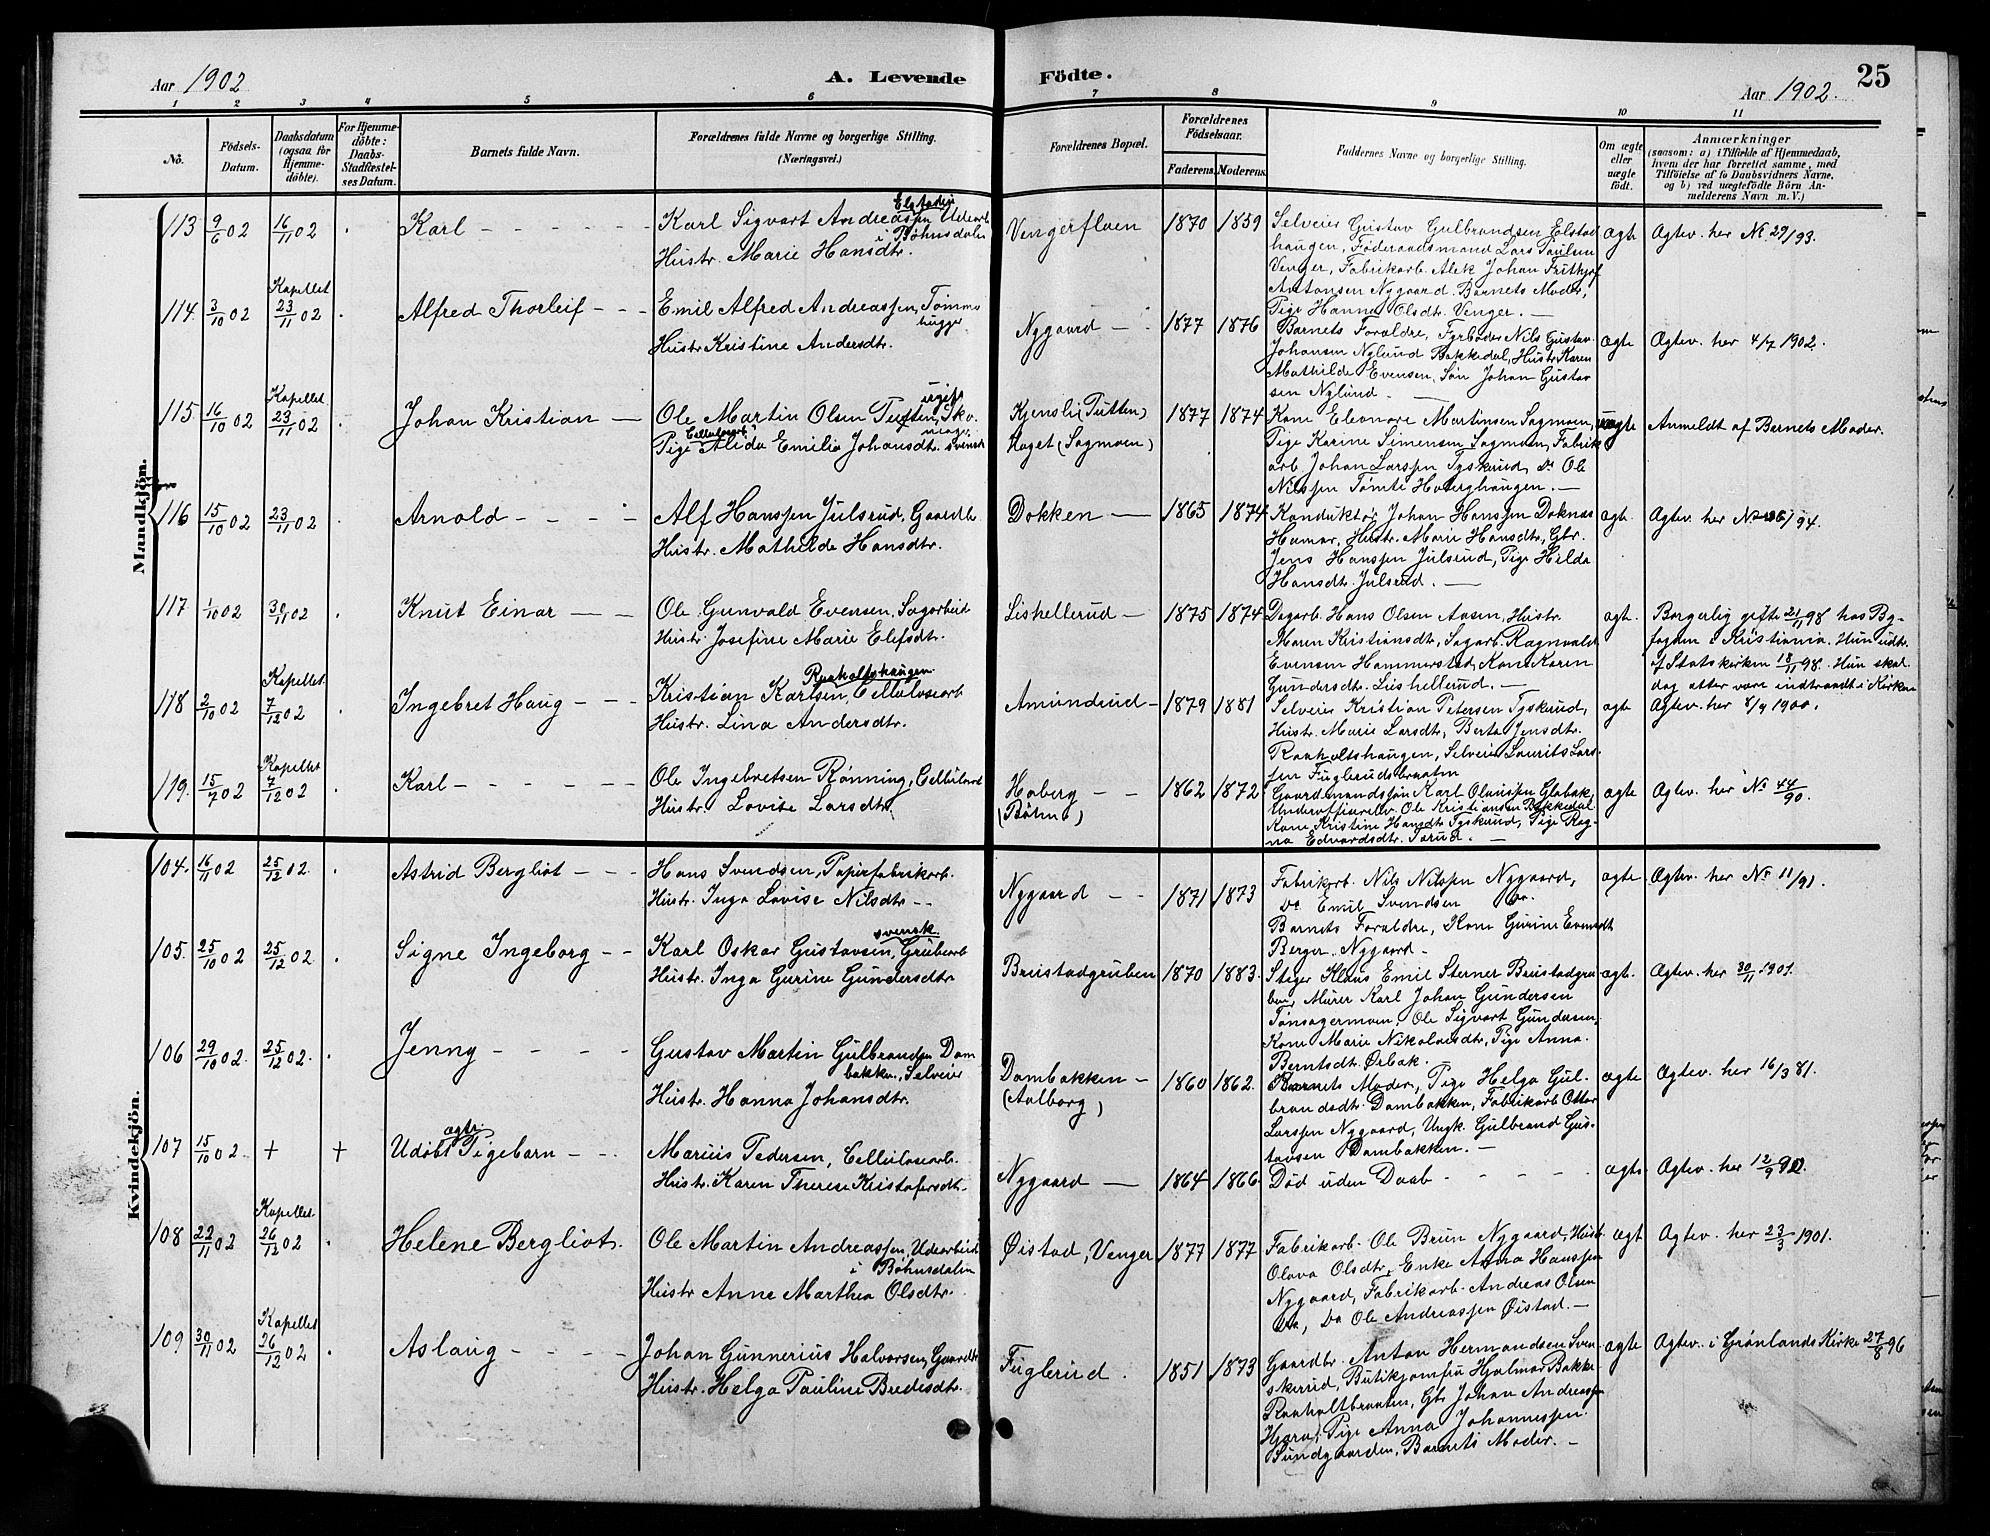 Aar 1902
A. Levende Födte.
Aar 1902.
25
1 2 3 4 5 6 7 8 9 10 11
Nö.
Födsels-Datum.
Daabsdatum (ogsaa for Hjemme-döbte).
For Hjemme-döbte: Daabs-Stadfæstel-ses Datum.
Barnets fulde Navn.
Forældrenes fulde Navne og borgerlige Stilling.
(Næringsvei.)
Forældrenes Bopæl.
Forældrenes Födselsaar.
Faderens. Moderens.
Faddernes Navne og borgerlige Stilling.
Om ægte eller uægte födt.
Anmærkninger
(saasom: a) i Tilfælde af Hjemmedaab,
hvem der har forrettet samme, med
Tilföielse af to Daabsvidners Navne,
og b) ved uægtefödte Börn An-
melderens Navn m. V.)
Mandkjön.
113 9/6 02 16/11 02 Karl
Karl Sigvart Andreassen Elstadeie Udearb.
i Bøhnsdalen
Hustr. Marie Hansdtr.
Vengerfloen 1870 1859
Selveier Gustav Gulbrandsen Elstad
haugen, Føderaadsmand Lars Paulsen
Venger, Fabrikarb. Alek Johan Frithjof
Antonsen Nygaard. Barnets Moder,
Pige Hanna Olsdtr. Venger. —
ægte Ægtev. her No. 29/93.
114. 3/10 02 Kapellet 23/11 02 Alfred Thorleif
Emil Alfred Andreassen, Tømmer
hugger
Hustr. Kristine Andersdtr.
Nygaard 1877 1876
Barnets Forældre, Fyrbøder Nils Gustav
Johansen Nylund Bakkedal, Hustr. Karen
Mathilde Evensen, Søn Johan Gustav
sen Nylund. —
ægte Ægtev. her 4/7 1902.
115 16/10 02 Kapellet 23/11 02 Johan Kristian
Ole Martin Olsen Tutten, ugift Sko.
mager
Cellulosearb.
Pige Alida Emilie Johansdtr. svensk
Kjensli (Tutten)
Haget (Sagmoen)
1877 1874
Kone Eleonore Martinsen Sagmoen,
Pige Karine Simensen Sagmoen, Fabrik
arb. Johan Larssen Tyskerud, Do Ole
Nilssen Tømte Haberghaugen. —
uægte Anmeldt af Barnets Moder.
116 15/10 02 23/11 02 Arnold
Alf Hanssen Julsrud, Gaardb.
Hustr. Mathilde Hansdtr.
Dokken 1865 1874
Konduktør Johan Hanssen Doknæs
Hamar, Hustr. Marie Hansdtr, Gbr.
Jens Hanssen Julsrud, Pige Hilda
Hansdtr. Julsrud. —
ægte. Ægtev. her No 36/94.
117 1/10 02 30/11 02 Knut Einar
Ole Gunvald Evensen, Sagarbeid
Hustr. Josefine Marie Elefsdtr.
Lishellerud 1875 1874
Dagarb. Hans Olsen Aasen, Hustr.
Maren Kristiansdtr, Sagarb. Ragnvald
Evensen Hammerstad, Kone Karen
Gundersdtr. Lishellerud. —
ægt. Borgerlig gifte 21/11 98 hos By-
fogden i Kristiania. Hun udtr.
af Statskirken 18/11 98. Hun skal
dog atter være indtraadt i Kirken
118 2/10 02 Kapellet 7/12 02 Ingebret Haug
Raaholtshaugen
Kristian Karlsen, Cellulosearb
Hustr. Lina Andersdtr.
Amundrud 1879 1881
Selveier Kristian Petersen Tyskerud,
Hustr. Marie Larsdtr, Berta Jensdtr.
Raaholtshaugen, Selveier Laurits Lars-
sen Fuglerudsbraaten
ægte Ægtev. her 8/4 1900.
119. 15/7 02 Kapellet 7/12 02 Karl
Ole Ingebretsen Rønning, Cellulosarb
Hustr. Lovise Larsdtr.
Haberg
(Bøhn)
1862 1872
Gaardmandssøn Karl Olaussen Glæbak,
Underofficerelev Ole Kristiansen Bakkedal
Kone Kristine Hansdtr Tyskerud, Pige Rag-
na Edvardsdtr. Tærud. —
ægte Ægtev. her No 44/90.
Kvindekjön.
104. 16/11 02 25/12 02 Astrid Bergliot
Hans Svendsen, Papirfabrikarb.
Hustr. Inga Lovise Nilsdtr
Nygaard 1871 1873
Fabrikarb. Nils Nilssen Nygaard,
Do Emil Svendsen Do.
Barnets Forældre, Kone Gurine Evensdt
Berger, Nygaard —
ægte Ægtev. her No 11/91.
105. 25/10 02 25/12 02 Signe Ingeborg
svensk.
Karl Oskar Gustavsen, Grubearb
Hustr. Inga Gurine Gundersdtr
Brustadgruben 1870 1883.
Steger Klaus Emil Sterner Brustadgru
ben, Murer Karl Johan Gundersen
Tønsagermoen, Ole Sigvart Gundersen,
Kone Marie Nikolaisdtr, Pige Anna
Berntsdtr. Ørbak.
ægt. Ægtev. her 30/11 1901.
106 29/10 02 25/12 02. Jenny
Gustav Martin Gulbrandsen Dam
bakken, Selveier
Hustr. Hanna Johansdtr.
Dambakken
(Aalborg)
1860 1862.
Barnets Moder, Pige Helga Gul-
brandsdtr. Dambakken, Fabrikarb Ottar
Larssen Nygaard, Ungk. Gulbrand Gus-
tavsen Dambakken. —
ægte Ægtev. her 16/3 81.
107 15/10 02. + + Udøbt ægte Pigebarn
Marius Pedersen, Cellulosearb.
Hustr. Karen Therese Kristofersdtr.
Nygaard 1864 1866
Død uden Daab
ægte Ægtev. her 12/9 90.
108 22/11 02 Kapellet 26/12 02 Helene Bergliot.
Ole Martin Andreassen, Udearbeid
i Bøhnsdalen
Hustr Anne Marthea Olsdtr.
Øistad, Venger 1877 1877
Fabrikarb. Ole Brun Nygaard, Hustr
Olava Olsdtr, Enke Anna Hanssen
Nygaard, Fabrikarb. Andreas Olsen
Do, Do Ole Andreassen Øistad. —
ægt Ægtev. her 23/3 1901.
109 30/11 02 Kapellet 26/12 02 Aslaug
Johan Gunnerius Halvorsen, Gaardbr
Hustr. Helga Pauline Bredesdtr.
Fuglerud. 1851 1873
Gaardbr. Anton Hermandsen Sven-
skerud, Butikjomfru Hjalmar Bakke
Raaholtbraaten, Gbr Johan Andreassen
Hjera, Pige Anna Johannessen
Sundgaarden, Barnets Moder. —
ægte Ægtev. i Grønlands Kirke 27/8 96